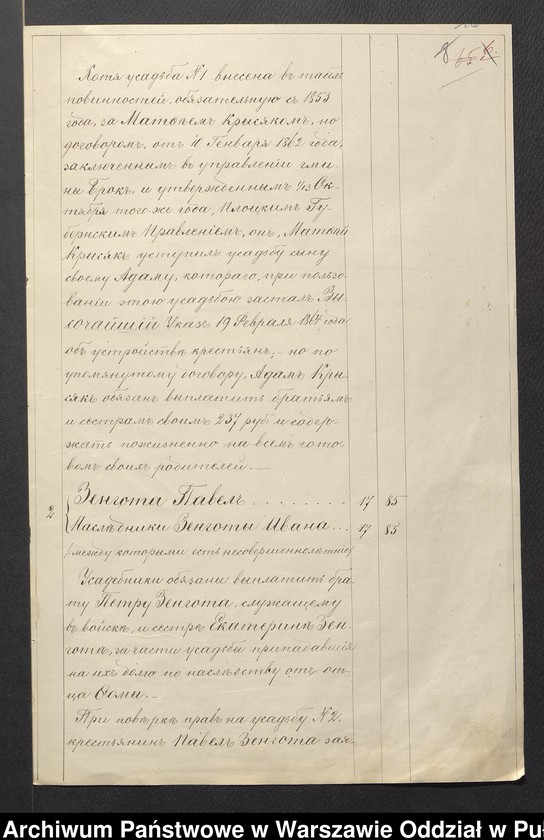 8
Хотя усадьба №1 внесена въ табел
повинностей, обязательную съ 1853
года, за Матѳеемъ Крысякомъ, но
договоромъ, отъ 10 Генваря 1862 года,
заключеннымъ въ управленіи гми-
ны Брокъ, и утвержденнымъ 1/13 Ок-
тября того-же года, Плоцкимъ Гу-
бернскимъ Правленіемъ, онъ, Матѳей
Крысякъ уступилъ усадьбу сыну
своему Адаму, котораго, при пользо-
ваніи этою усадьбою засталъ Вы-
сочайшій Указъ 19 Февраля 1864 года
объ устройствѣ крестьянъ; – но по
упомянутому договору, Адамъ Кры-
сякъ обязанъ выплатить братьямъ
и сестрамъ своимъ 237 руб и содер-
жать пожизненно на всемъ гото-
вомъ своихъ родителей. —
2 Зенгота Павелъ . . . . . . . . 17 85
Наслѣдники Зенготы Ивана ... 17 85
/: между которыми есть несовершеннолѣтніе/
Усадебники обязаны выплатить бра-
ту Петру Зенгота, служащему
въ войскѣ, и сестрѣ Екатеринѣ Зен-
готѣ, за части усадьбы припадавшія
на ихъ долю по наслѣдству отъ от-
ца Ѳомы. —
При повѣркѣ правъ на усадьбу №2.
крестьянинъ Павелъ Зенгота зая-
Archiwum Państwowe w Warszawie Oddział w Pu